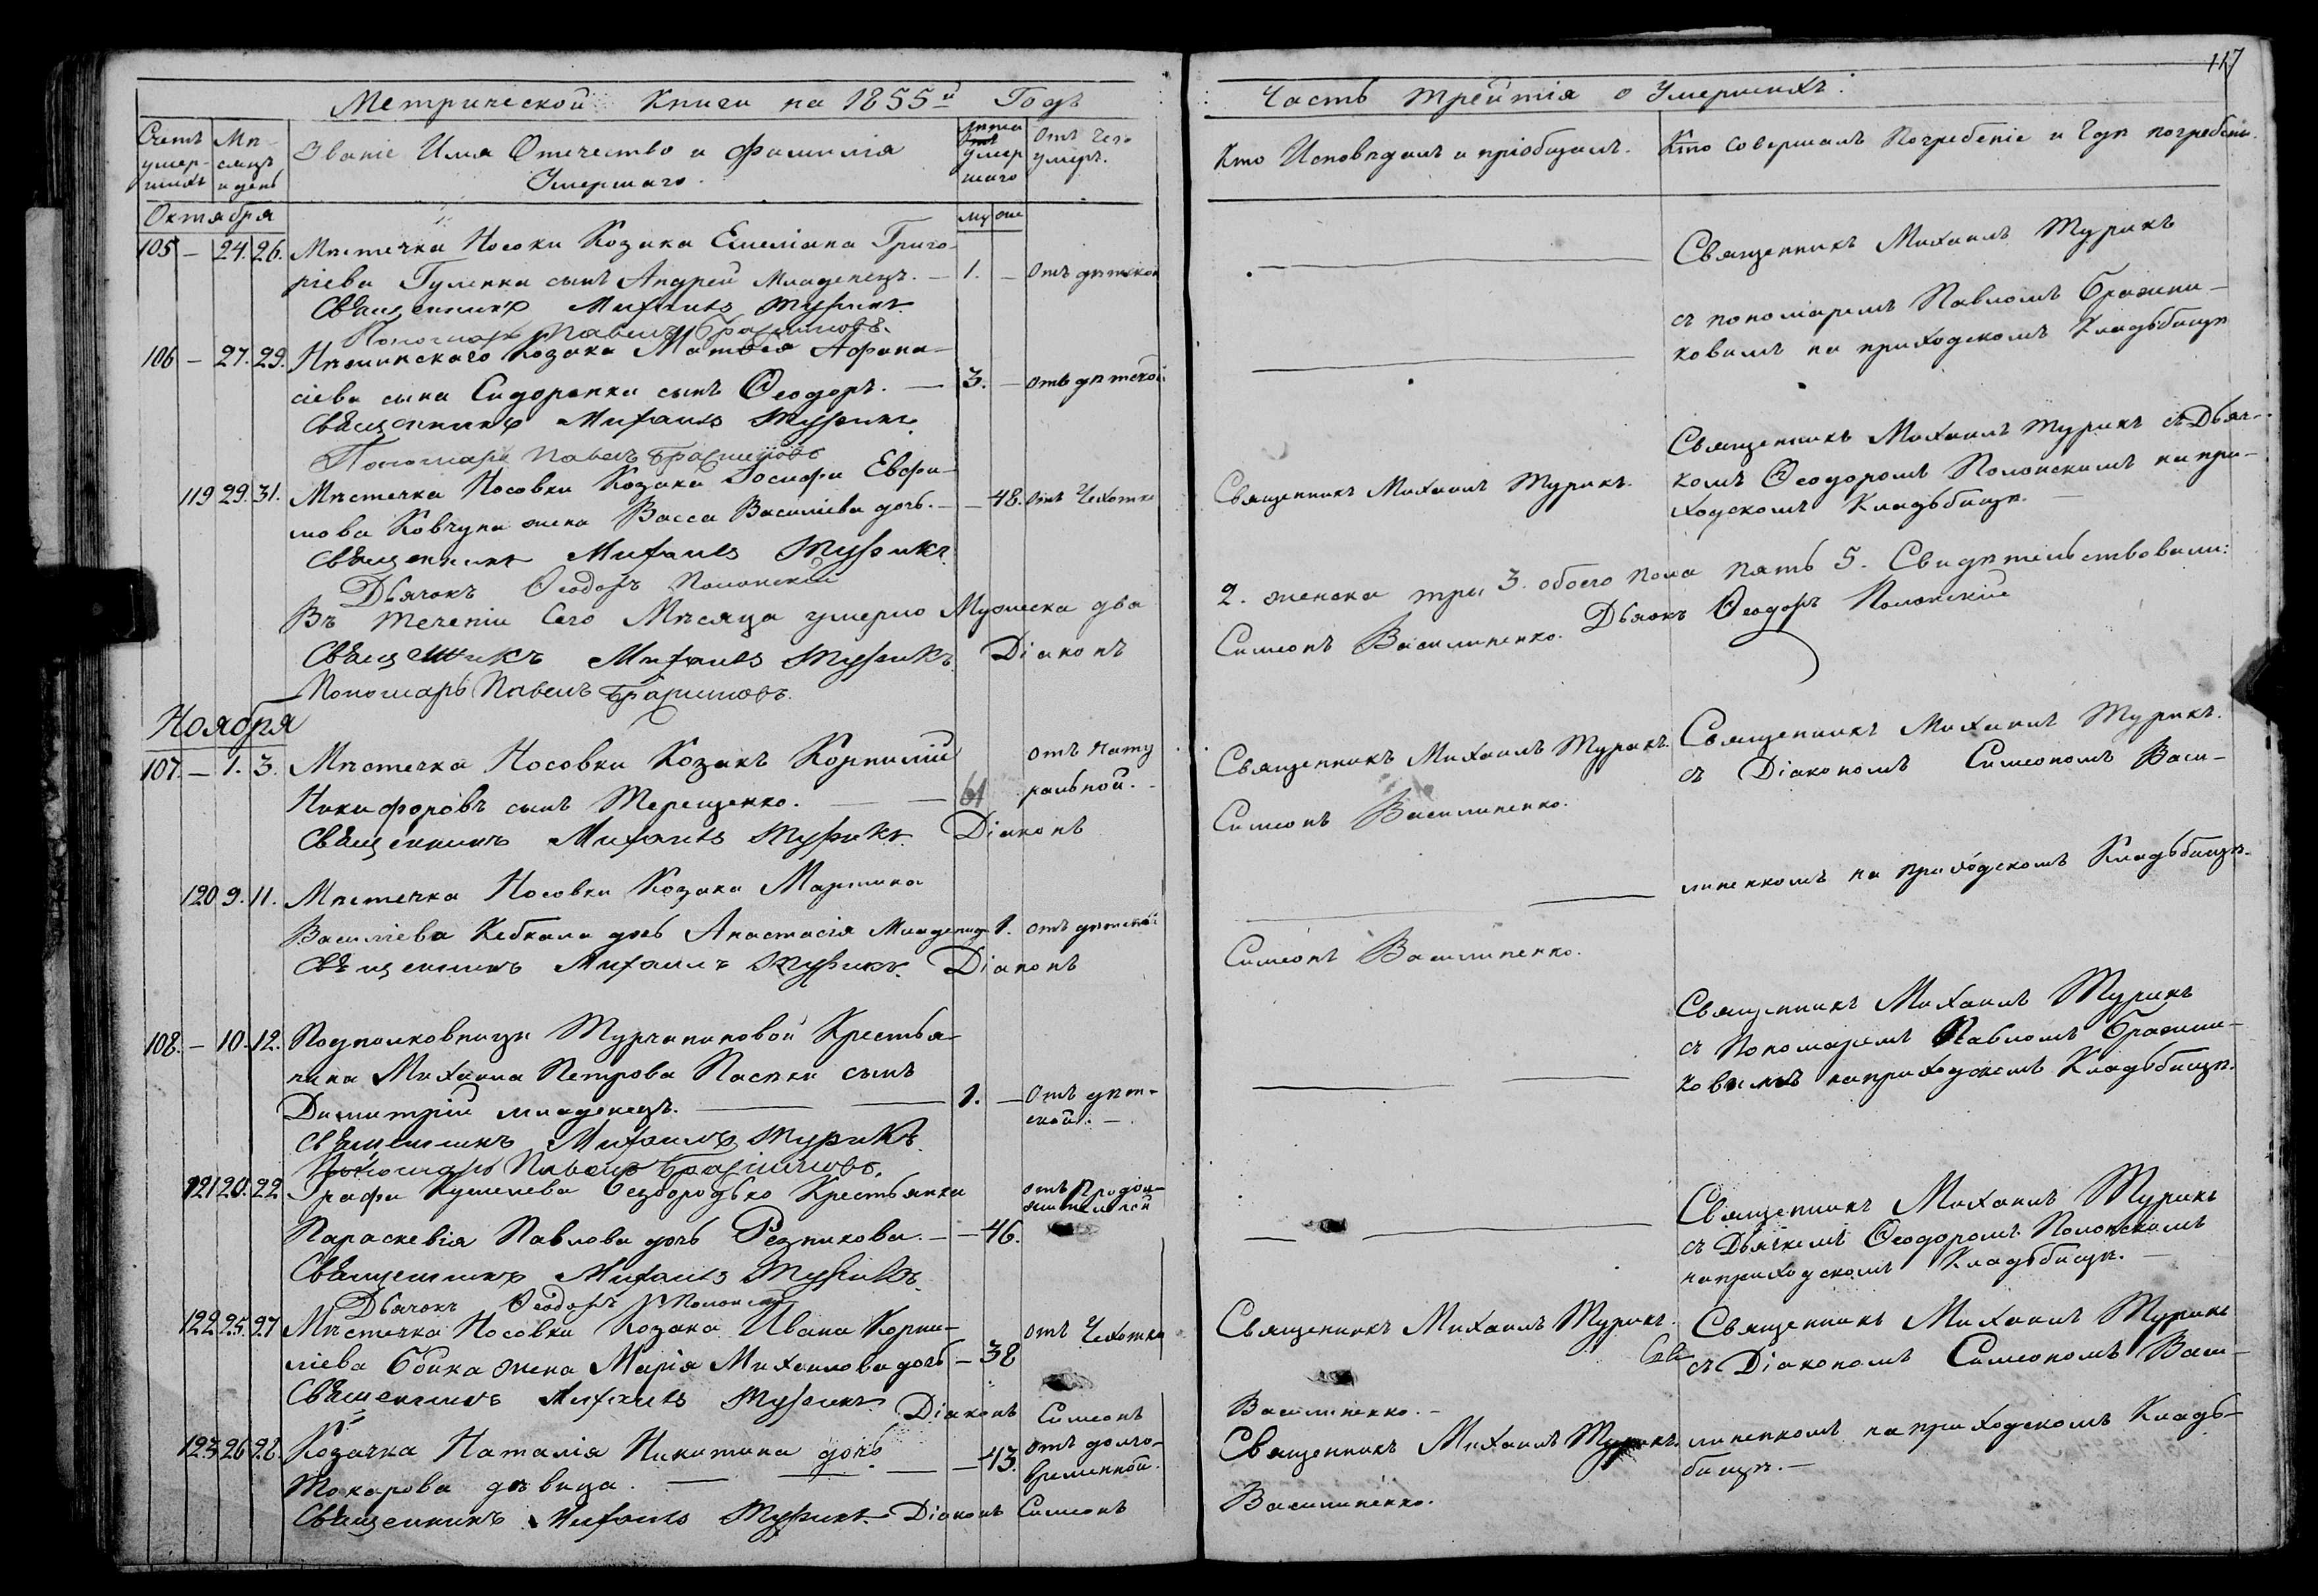 117
Метрической Книги на 1855й Годъ
Часть третія о Умершихъ.
Счетъ умершихъ
Мѣсяцъ и день
Званіе Имя Отечество и Фамилія Умершаго.
Лѣта умершаго
Отъ чего умеръ.
Кто Исповѣдалъ и пріобщалъ.
Кто совершалъ Погребеніе и Гдѣ погребены.
Октября
му же
105 — 24. 26. Мѣстечка Носовки Козака Емеліана Григо-
ріева Гуленка сынъ Андрей Младенецъ. — 1. — Отъ дѣтской
Священникъ Михаилъ Турикъ
Пономарь Павелъ Бражниковъ.
Священникъ Михаилъ Турикъ
съ пономаремъ Павломъ Бражни-
ковымъ на приходскомъ Кладьбищѣ
106 — 27. 29. Козака Матѳея Афана-
сіева сына Сидоренка сынъ Ѳеодоръ. — 3. — Отъ дѣтской
Священникъ Михаилъ Турикъ
Пономарь Павелъ Бражниковъ
119 29. 31. Мѣстечка Носовки Козака Іосифа Евфи-
мова Ковчуна жена Васса Василіева дочь. — 48. Отъ Чехотки
Священникъ Михаилъ Турикъ
Дьячокъ Ѳеодоръ Полонскій
Священникъ Михаилъ Турикъ.
Священникъ Михаилъ Турикъ съ Дьяч-
комъ Ѳеодоромъ Полонскимъ на при-
ходскомъ Кладьбищѣ. —
Въ теченіи Сего Мѣсяца умерло Мужеска два
2. женска три 3. обоего пола пять 5. Свидѣтельствовали:
Священникъ Михаилъ Турикъ Діаконъ
Симеонъ Василиненко. Дьячокъ Ѳеодоръ Полонскій
Пономарь Павелъ Бражниковъ.
Ноября
107. — 1. 3. Мѣстечка Носовки Козакъ Корнилій
Никифоровъ сынъ Терещенко. — — 61 отъ нату
ральной. —
Священникъ Михаилъ Турикъ Діаконъ
Священникъ Михаилъ Турикъ.
Симеонъ Василиненко.
Священникъ Михаилъ Турикъ.
съ Діакономъ Симеономъ Васи-
линенкомъ на приходскомъ Кладьбищѣ.
120 9. 11. Мѣстечка Носовки Козака Мартина
Василіева Кебкала дочь Анастасія Младенецъ 1. отъ дѣтской
Священникъ Михаилъ Турикъ. Діаконъ
Симеонъ Василиненко.
108. — 10. 12. Подполковницы Турчаниновой Крестья-
нина Михаила Петрова Пасѣки сынъ
Димитрій младенецъ. — — 1. — Отъ дѣт-
ской. —
Священникъ Михаилъ Турикъ
Пономарь Павелъ Бражниковъ.
Священникъ Михаилъ Турикъ
съ Пономаремъ Павломъ Бражни-
ковымъ на приходскомъ Кладьбищѣ.
121 20. 22 Графа Кушелева Безбородько Крестьянка
Параскевія Павлова дочь Резникова. — — 46.
отъ Продол-
жительной
Священникъ Михаилъ Турикъ
Дьячокъ Ѳеодоръ Полонскій
Священникъ Михаилъ Турикъ
съ Дьячкомъ Ѳеодоромъ Полонскимъ
на приходскомъ Кладьбищѣ. —
122 25. 27 Мѣстечка Носовки Козака Ивана Корни-
ліева Бойка жена Марія Михайлова дочь — 38 отъ Чехотки
Священникъ Михаилъ Турикъ Діаконъ Симеонъ
Священникъ Михаилъ Турикъ.
Василиненко. —
Священникъ Михаилъ Турикъ
съ Діакономъ Симеономъ Васи-
линенкомъ на приходскомъ Кладь-
бищѣ. —
123 26 28. Козачка Наталія Никитина дочь
Токарова дѣвица. — — 43. отъ долго-
временной.
Священникъ Михаилъ Турикъ. Діаконъ Симеонъ
Священникъ Михаилъ Турикъ.
Василиненко.